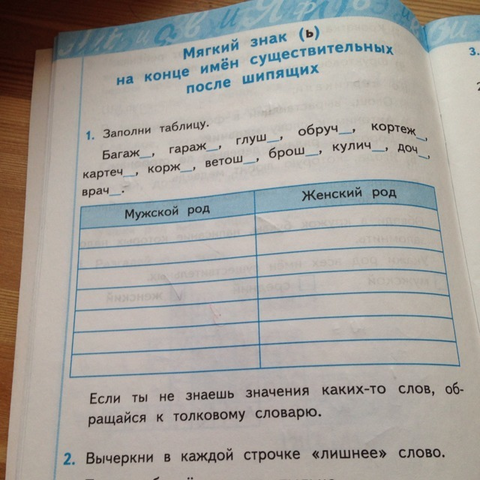 Мягкий знак (ь)
на конце имён существительных
после шипящих
1. Заполни таблицу.
Багаж__, гараж__, глуш__, обруч__, кортеж__,
картеч__, корж__, ветош__, брош__, кулич__, доч__,
врач__.
Мужской род Женский род
Если ты не знаешь значения каких-то слов, об-
ращайся к толковому словарю.
2. Вычеркни в каждой строчке «лишнее» слово.
3.